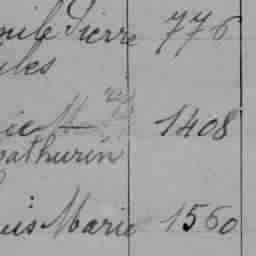 mile Pierre 776
ules
rie M
1408
Mathurin
uis Marie 1560